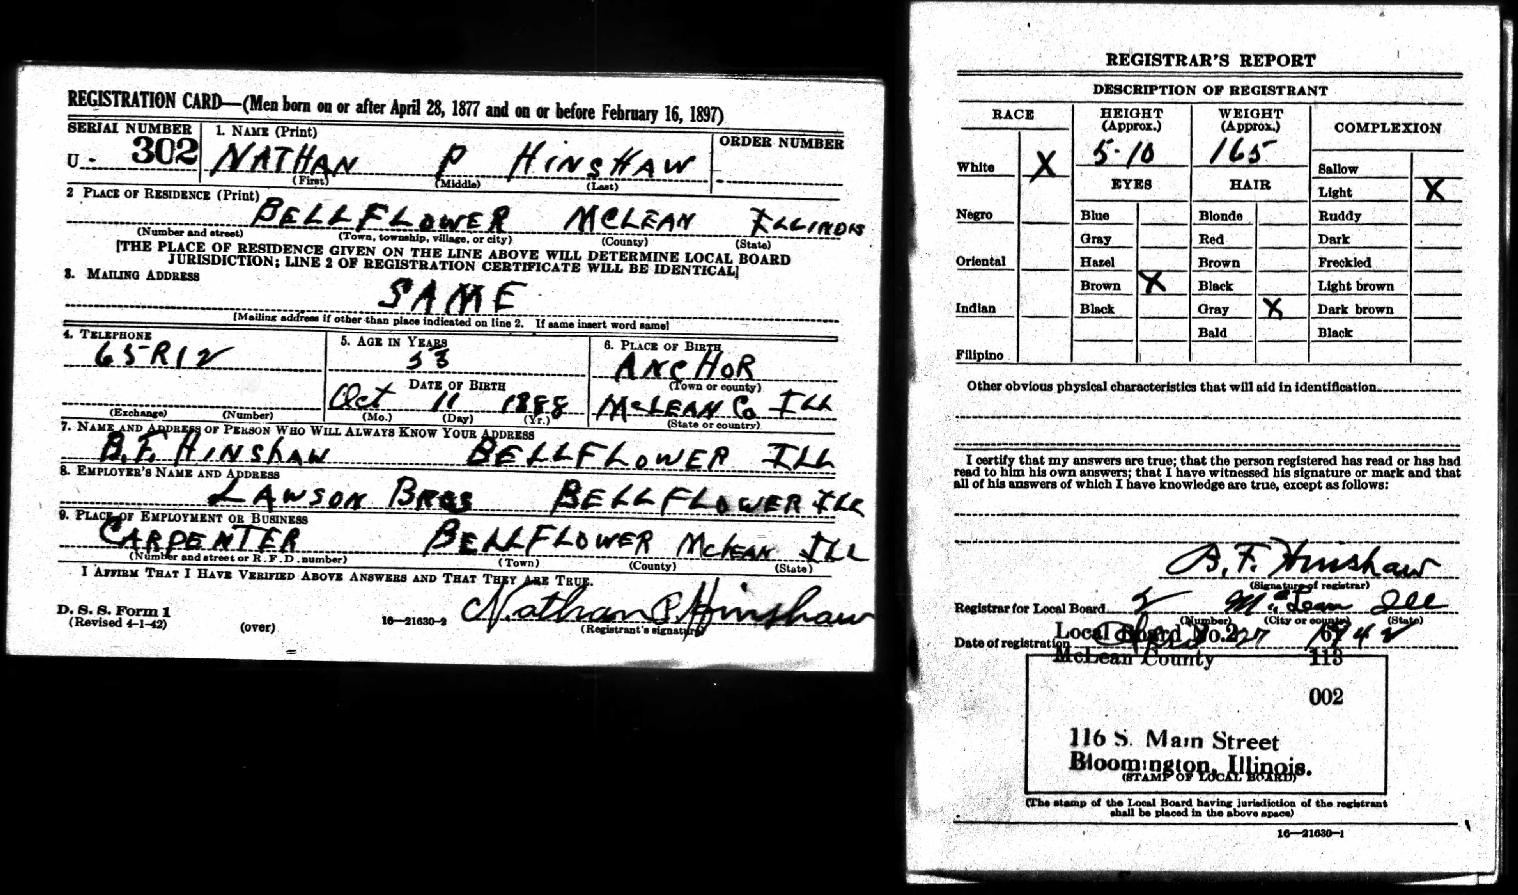 REGISTRATION CARD—(Men born on or after April 28, 1877 and on or before February 16, 1897)
SERIAL NUMBER
1. NAME (Print)
ORDER NUMBER
U - 302
NATHAN P HINSHAW
(First) (Middle) (Last)
2 PLACE OF RESIDENCE (Print)
BELLFLOWER MCLEAN ILLINOIS
(Number and street) (Town, township, village, or city) (County) (State)
[THE PLACE OF RESIDENCE GIVEN ON THE LINE ABOVE WILL DETERMINE LOCAL BOARD
JURISDICTION; LINE 2 OF REGISTRATION CERTIFICATE WILL BE IDENTICAL]
3. MAILING ADDRESS
SAME
[Mailing address if other than place indicated on line 2. If same insert word same]
4. TELEPHONE
5. AGE IN YEARS
6. PLACE OF BIRTH
65-R12
53
ANCHOR
(Town or county)
DATE OF BIRTH
Oct 11 1888
MCLEAN CO ILL
(Exchange) (Number)
(Mo.) (Day) (Yr.)
(State or country)
7. NAME AND ADDRESS OF PERSON WHO WILL ALWAYS KNOW YOUR ADDRESS
B.F. HINSHAW BELLFLOWER ILL
8. EMPLOYER'S NAME AND ADDRESS
LAWSON BROS BELLFLOWER ILL
9. PLACE OF EMPLOYMENT OR BUSINESS
CARPENTER BELLFLOWER MCLEAN ILL
(Number and street or R. F. D. number) (Town) (County) (State)
I AFFIRM THAT I HAVE VERIFIED ABOVE ANSWERS AND THAT THEY ARE TRUE.
Nathan P. Hinshaw
D. S. S. Form 1
(Revised 4-1-42) (over) 16—21630-2 (Registrant's signature)
REGISTRAR'S REPORT
DESCRIPTION OF REGISTRANT
RACE
HEIGHT
(Approx.)
WEIGHT
(Approx.)
COMPLEXION
5-10 165
White X
EYES HAIR
Sallow
Light X
Negro
Blue
Blonde
Ruddy
Gray
Red
Dark
Oriental
Hazel
Brown
Freckled
Brown X
Black
Light brown
Indian
Black
Gray X
Dark brown
Bald
Black
Filipino
Other obvious physical characteristics that will aid in identification
I certify that my answers are true; that the person registered has read or has had
read to him his own answers; that I have witnessed his signature or mark and that
all of his answers of which I have knowledge are true, except as follows:
B.F. Hinshaw
(Signature of registrar)
Registrar for Local Board 2 McLean Ill
(Number) (City or county) (State)
Date of registration 27 1942
Local Board No. 2 67
McLean County 113
002
116 S. Main Street
Bloomington, Illinois.
(STAMP OF LOCAL BOARD)
(The stamp of the Local Board having jurisdiction of the registrant
shall be placed in the above space)
16—21630-1